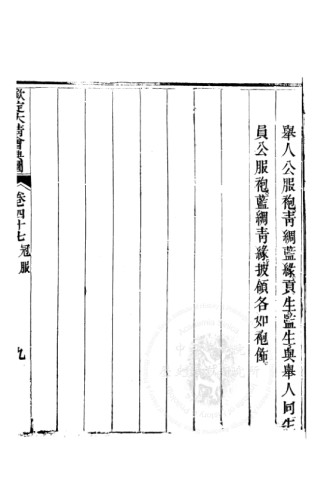 舉人公服袍青綢藍緣貢生監生與舉人同生
員公服袍藍綢青緣披領各如袍飾
欽定大清會典圖
卷四十七 冠服
九